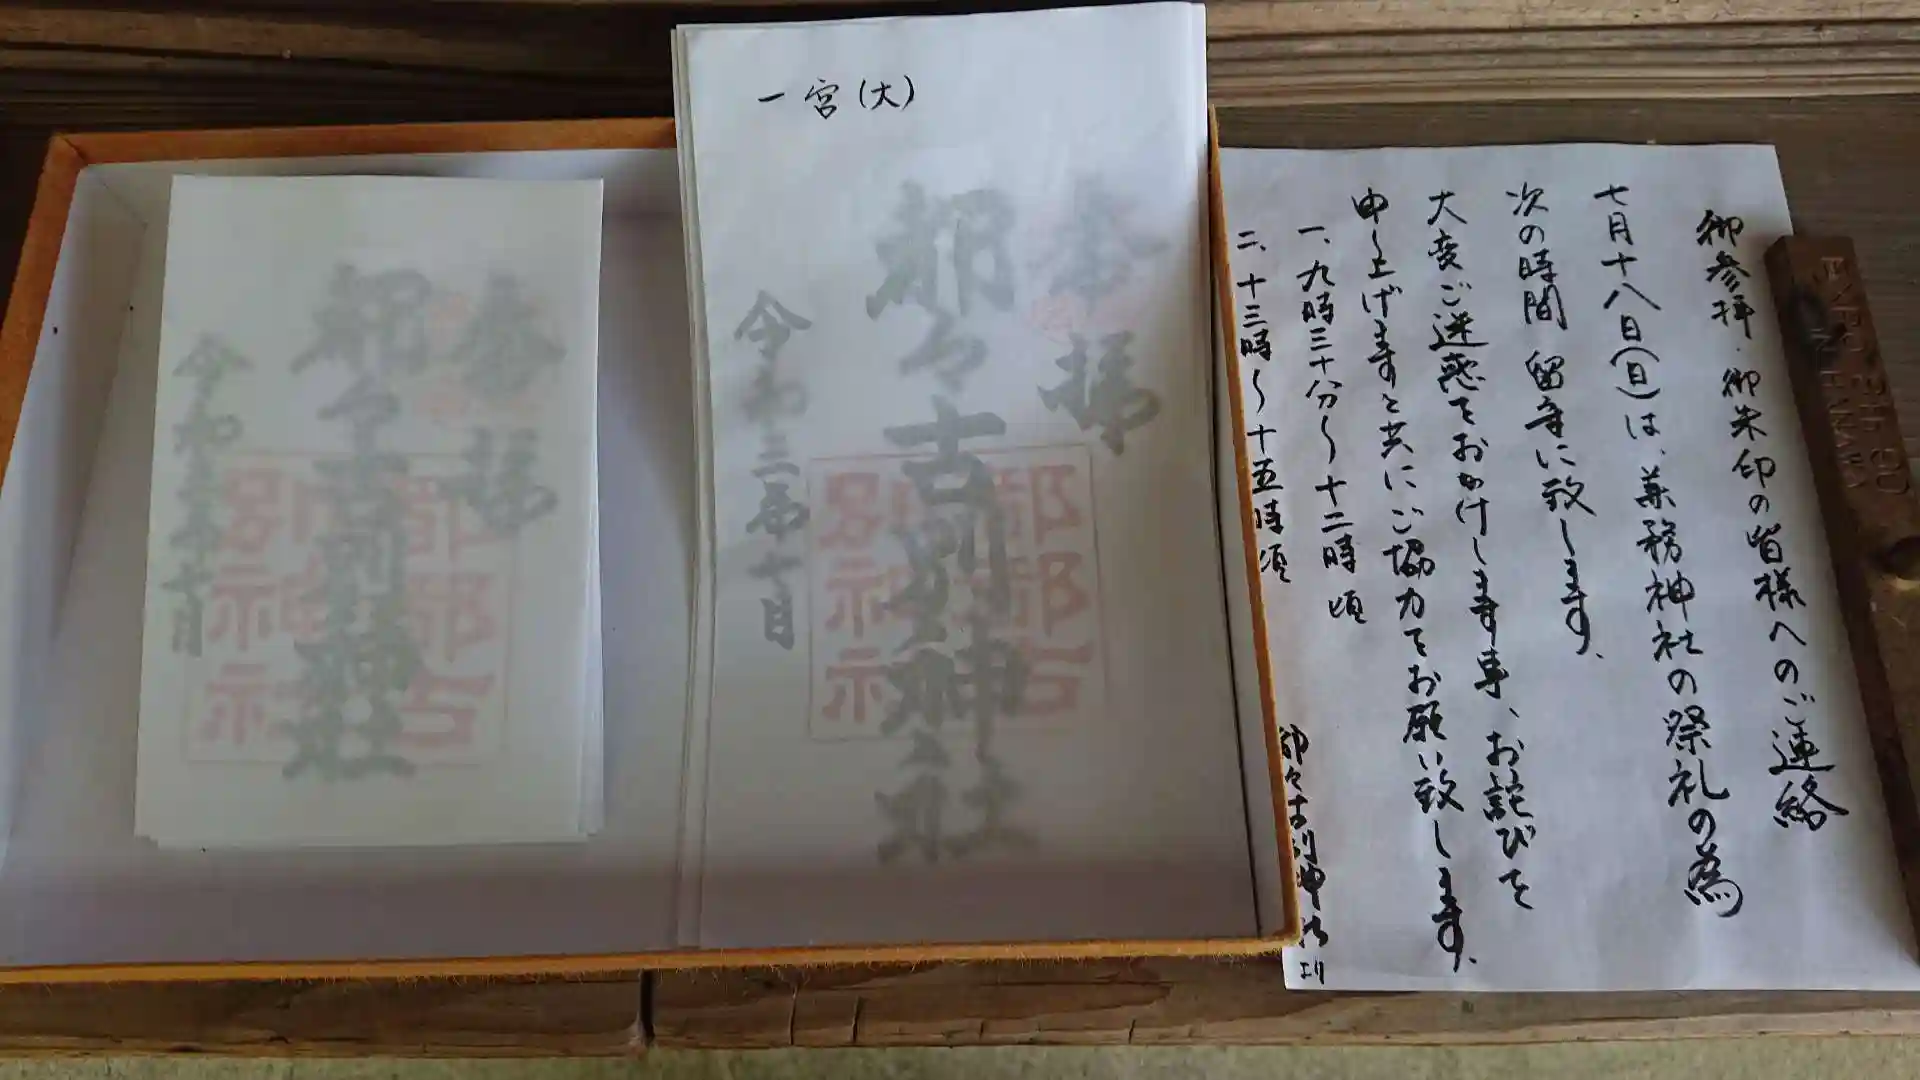 御参拝・御朱印の皆様へのご連絡
七月十八日(日)は、兼務神社の祭礼の為
次の時間 留守に致します。
大変ご迷惑をおかけします事、お詫びを
申し上げますと共にご協力をお願い致します。
一、九時三十分〜十二時頃
二、十三時〜十五時頃
都々古別神社より
一宮(大)
奉拝
都々古別神社
令和三年七月
奉拝
都々古別神社
令和三年七月